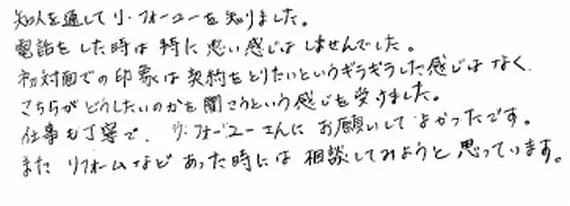 知人を通してリ・フォーユーを知りました。
電話をした時は特に悪い感じはしませんでした。
初対面での印象は契約をとりたいというギラギラした感じはなく、
こちらがどうしたいのかを聞こうという感じを受けました。
仕事も丁寧で、リ・フォーユーさんにお願いしてよかったです。
またリフォームなどあった時には相談してみようと思っています。